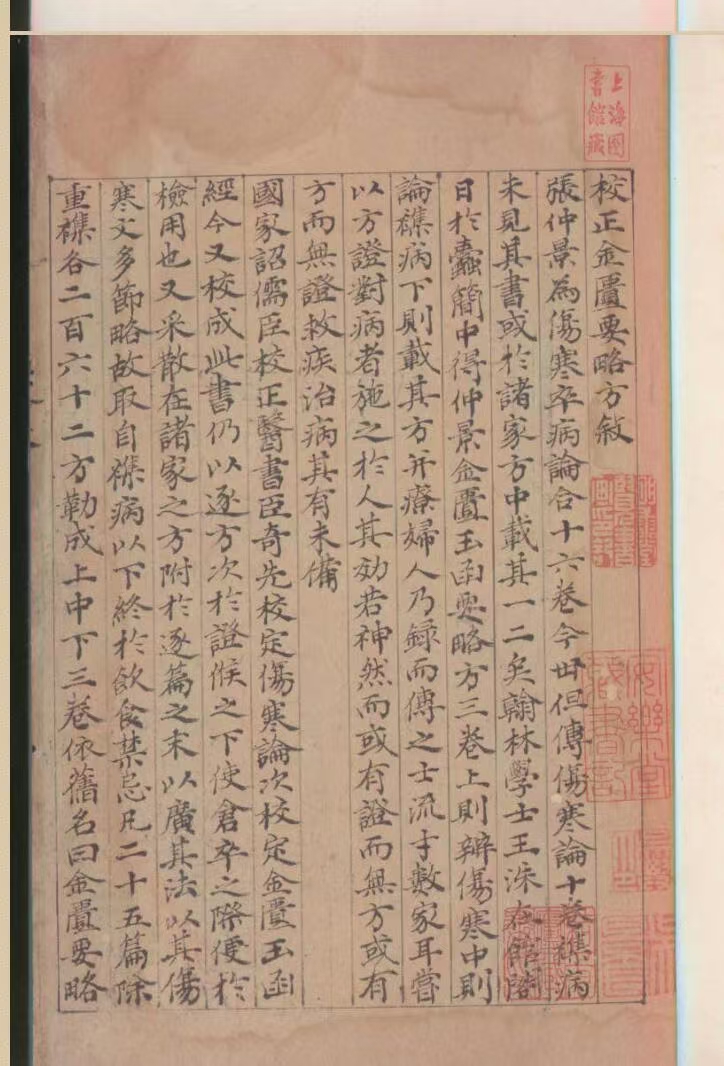 上海圖
書館藏
校正金匱要略方敘
張仲景為傷寒卒病論合十六卷今世但傳傷寒論十卷雜病
未見其書或於諸家方中載其一二矣翰林學士王洙在館閣
日於蠹簡中得仲景金匱玉函要略方三卷上則辨傷寒中則
論雜病下則載其方并療婦人乃録而傳之士流才數家耳嘗
以方證對病者施之於人其効若神然而或有證而無方或有
方而無證救疾治病其有未備
國家詔儒臣校正醫書臣奇先校定傷寒論次校定金匱玉函
經今又校成此書仍以逐方次於證候之下使倉卒之際便於
檢用也又采散在諸家之方附於逐篇之末以廣其法以其傷
寒文多節略故取自雜病以下終於飲食禁忌凡二十五篇除
重雜各二百六十二方勒成上中下三卷依舊名曰金匱要略